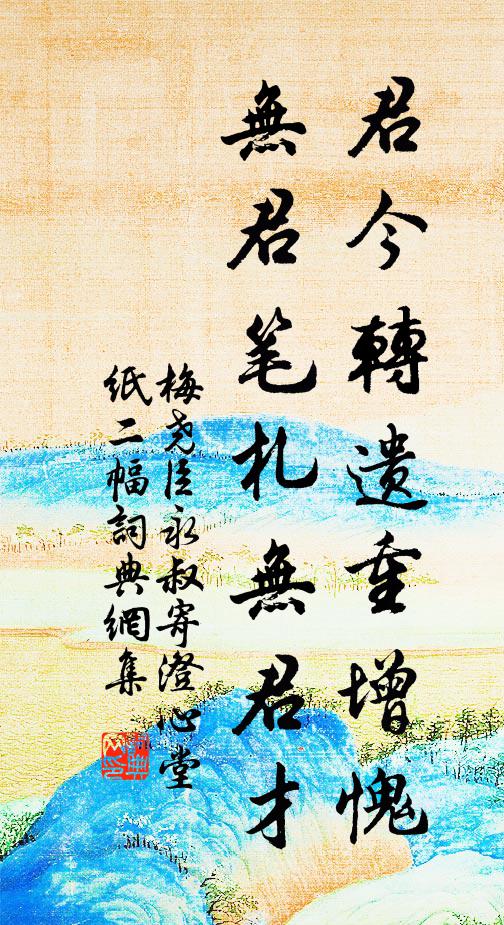 君今轉遺重增愧
無君笔札無君才
梅尧臣永叔寄澄心堂
纸二幅詞典網集